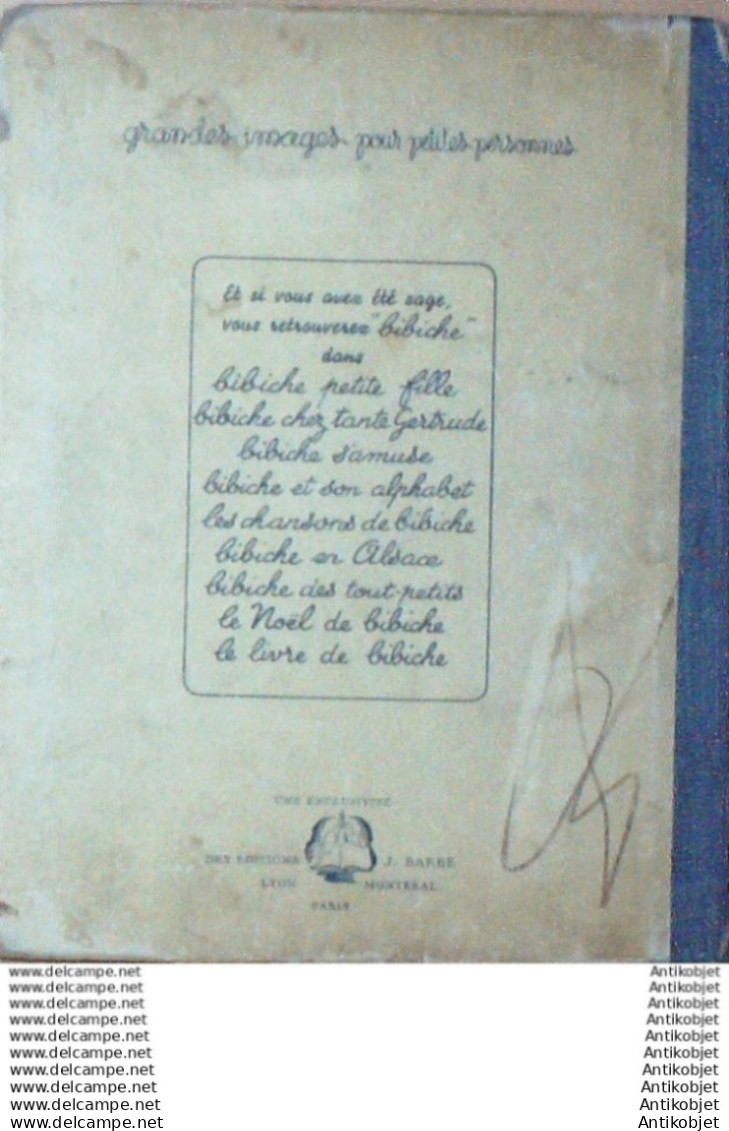 grandes images pour petites personnes
Et si vous avez été sage,
vous retrouverez "bibiche"
dans
bibiche petite fille
bibiche chez tante Gertrude
bibiche s'amuse
bibiche et son alphabet
les chansons de bibiche
bibiche en Alsace
bibiche des tout-petits
le Noël de bibiche
le livre de bibiche
UNE EXCLUSIVITÉ
DES EDITIONS J. BARBE
LYON MONTREAL
PARIS
www.delcampe.net Antikobjet
www.delcampe.net Antikobjet
www.delcampe.net Antikobjet
www.delcampe.net Antikobjet
www.delcampe.net Antikobjet
www.delcampe.net Antikobjet
www.delcampe.net Antikobjet
www.delcampe.net Antikobjet
www.delcampe.net Antikobjet
www.delcampe.net Antikobjet